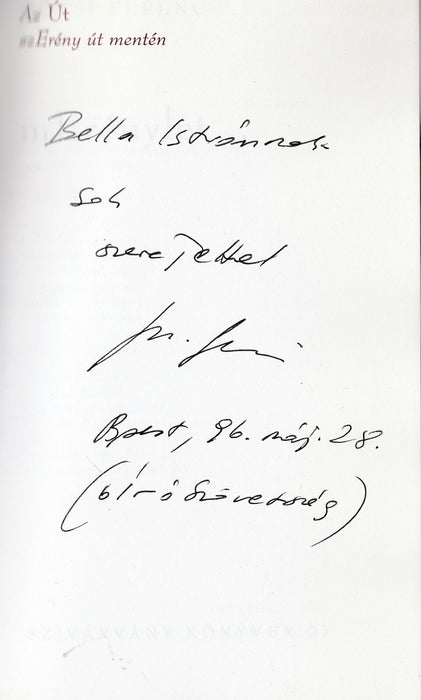 Az Út
az Erény út mentén
Bella Istvánnak
Sok
szeretettel
Bpest, 96. máj. 28.
(Író Szövetség)
SZIVÁRVÁNY KÖNYVEK 27